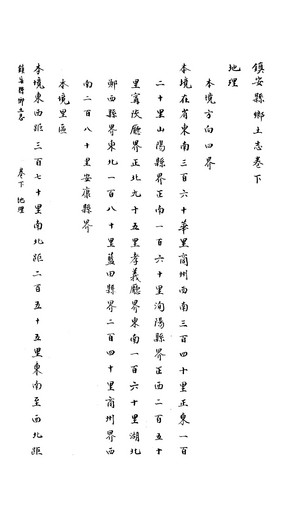 鎮安縣鄉土志卷下
地理
本境方向四界
本境在省東南三百六十華里商州西南三百四十里正東一百
二十里山陽縣界正南一百六十里洵陽縣界正西二百五十
里寧陜廳界正北九十五里孝義廳界東南一百六十里湖北
鄖西縣界東北一百八十里藍田縣界二百四十里商州界西
南二百八十里安康縣界
本境里區
本境東西距三百七十里南北距二百五十五里東南至西北距
鎮安縣鄉土志 卷下 地理